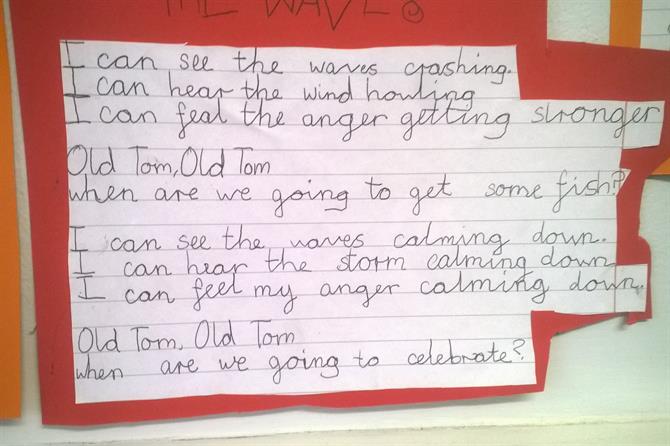 THE WAVES
I can see the waves crashing.
I can hear the wind howling
I can feal the anger getting stronger
Old Tom, Old Tom
when are we going to get some fish?
I can see the waves calming down.
I can hear the storm calming down
I can feel my anger calming down.
Old Tom, Old Tom
when are we going to celebrate?